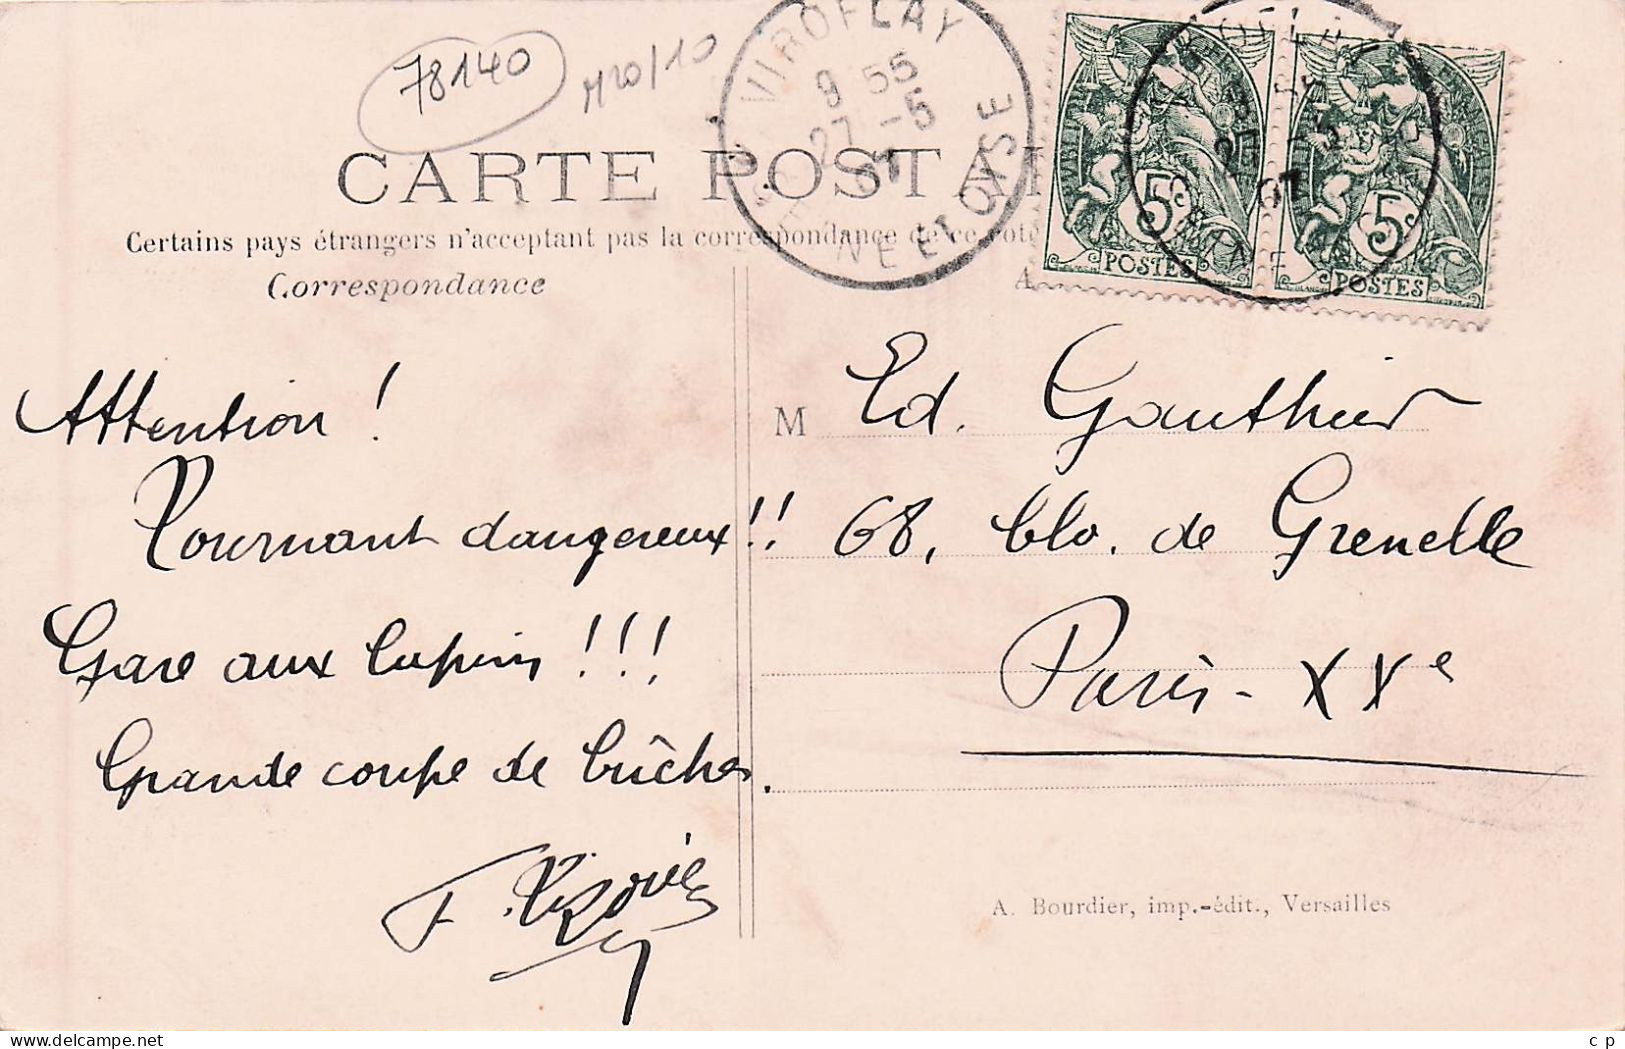 78140
M20/10
VIROFLAY
9 55
27 -5
07
SEINE ET OISE
CARTE POSTA
Certains pays étrangers n'acceptant pas la correspondance de ce côté
Correspondance
A
5c
POSTES
5c
POSTES
07
Attention !
Tournant dangereux !!
Gare aux lapins !!!
Grande coupe de bûches.
M Ed. Gauthier
68, blv. de Grenelle
Paris - XVe
A. Bourdier, imp.-édit., Versailles
c p